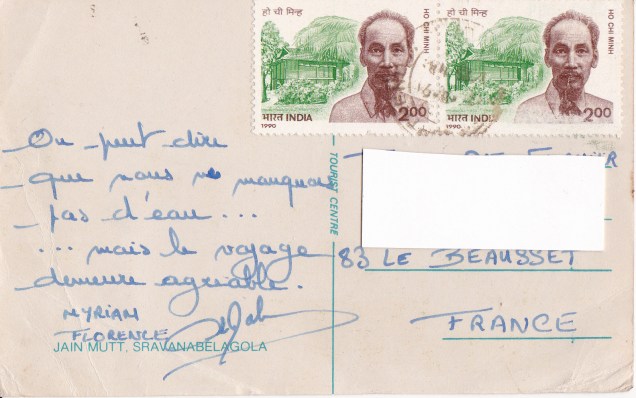 हो ची मिन्ह
HO CHI MINH
भारत INDIA
1990
2.00
हो ची मिन्ह
HO CHI MINH
भारत INDIA
1990
2.00
On peut dire
que nous ne manquons
pas d'eau...
... mais le voyage
demeure agréable.
MYRIAM
FLORENCE
JAIN MUTT, SRAVANABELAGOLA
TOURIST CENTRE
83 LE BEAUSSET
FRANCE